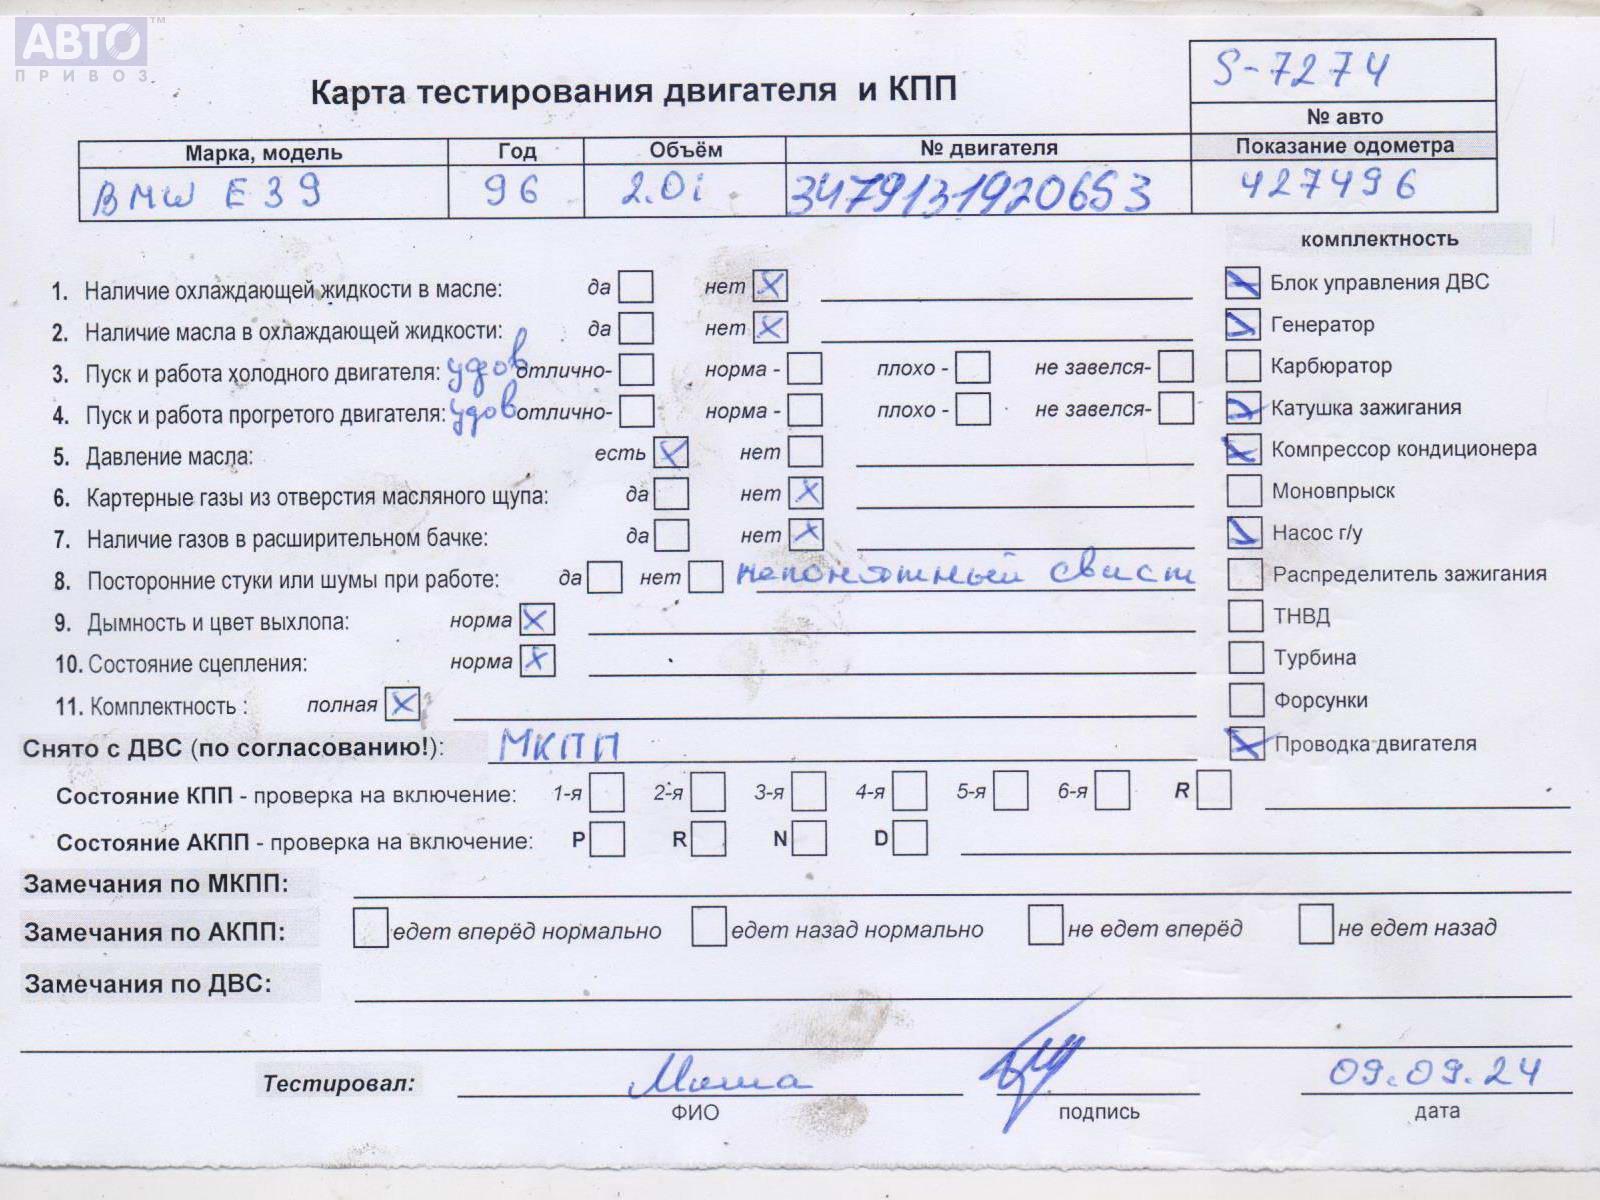 АВТО™
ПРИВОЗ
S-7274
Карта тестирования двигателя и КПП
№ авто
Марка, модель Год Объём № двигателя Показание одометра
BMW E39 96 2.0i 3479131920653 427496
комплектность
1. Наличие охлаждающей жидкости в масле: да нет X Блок управления ДВС
2. Наличие масла в охлаждающей жидкости: да нет X Генератор
3. Пуск и работа холодного двигателя: удов отлично- норма - плохо - не завелся- Карбюратор
4. Пуск и работа прогретого двигателя: удов отлично- норма - плохо - не завелся- Катушка зажигания
5. Давление масла: есть X нет Компрессор кондиционера
6. Картерные газы из отверстия масляного щупа: да нет X Моновпрыск
7. Наличие газов в расширительном бачке: да нет X Насос г/у
8. Посторонние стуки или шумы при работе: да нет непонятный свист Распределитель зажигания
9. Дымность и цвет выхлопа: норма X ТНВД
10. Состояние сцепления: норма X Турбина
11. Комплектность : полная X Форсунки
Снято с ДВС (по согласованию!): МКПП Проводка двигателя
Состояние КПП - проверка на включение: 1-я 2-я 3-я 4-я 5-я 6-я R
Состояние АКПП - проверка на включение: P R N D
Замечания по МКПП:
Замечания по АКПП: едет вперёд нормально едет назад нормально не едет вперёд не едет назад
Замечания по ДВС:
Тестировал: Миша 09.09.24
ФИО подпись дата